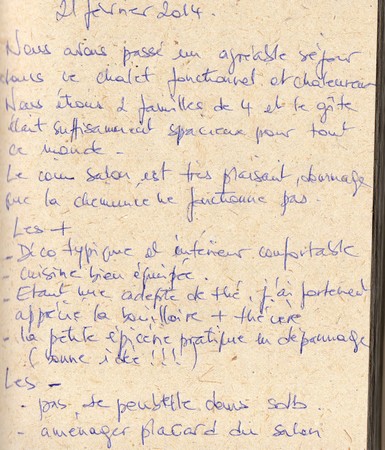 21 février 2014.
Nous avons passé un agréable séjour
dans ce chalet fonctionnel et chaleureux
Nous étions 2 familles de 4 et le gîte
était suffisamment spacieux pour tout
ce monde.
Le coin salon est très plaisant, dommage
que la cheminée ne fonctionne pas.
Les +
- Déco typique et intérieur confortable
- cuisine bien équipée.
- Etant une adepte de thé, j'ai fortement
apprécié la bouilloire + théière
- la petite épicerie pratique en dépannage
(bonne idée !!!)
Les -
- pas de poubelle dans sdb.
- aménager placard du salon